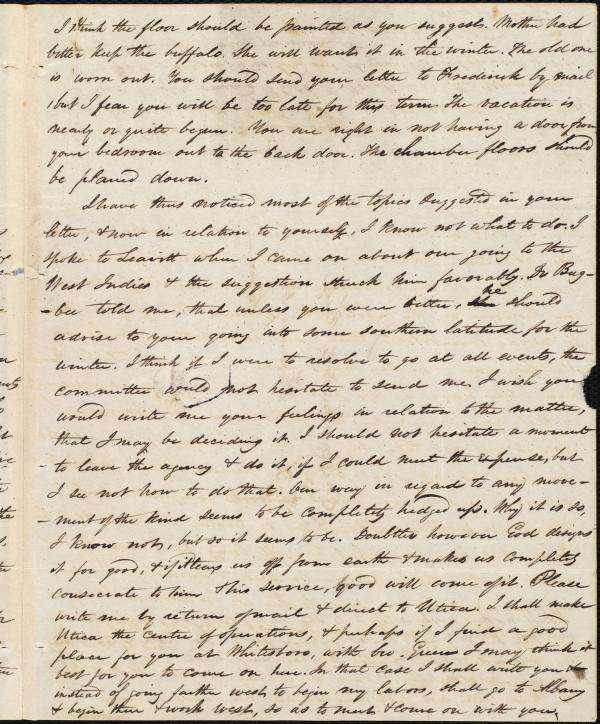 I think the floor should be painted as you suggest. Mother had
better keep the buffalo. She will want it in the winter. The old one
is worn out. You should send your letter to Frederick by mail
, but I fear you will be too late for this term. The vacation is
nearly or quite begun. You are right in not having a door from
your bedroom out to the back door. The chamber floors should
be planed down.
I have thus noticed most of the topics suggested in your
letter, & now in relation to yourself, I know not what to do. I
spoke to Leavitt when I came on about our going to the
West Indies & the suggestion struck him favorably. Dr Bug-
-bee told me, that unless you were better, he should
advise to your going into some southern latitude for the
winter. I think if I were to resolve to go at all events, the
committee would not hesitate to send me. I wish you
would write me your feelings in relation to the matter,
that I may be deciding it. I should not hesitate a moment
- to leave the agency & do it, if I could meet the expense, but
I see not how to do that. Our way in regard to any move-
- ment of the kind seems to be completely hedged up. Why it is so,
I know not, but so it seems to be. Doubtless however God designs
it for good, & if it tears us off from earth & makes us completely
consecrate to him & his service, good will come of it. Please
write me by return of mail & direct to Utica. I shall make
Utica the centre of operations, & perhaps if I find a good
place for you at Whitesboro, with bro. Green I may think it
best for you to come on here. In that case I shall write you &
instead of going farther west to begin my labors, shall go to Albany
& begin there & work west, so as to meet & come on with you.